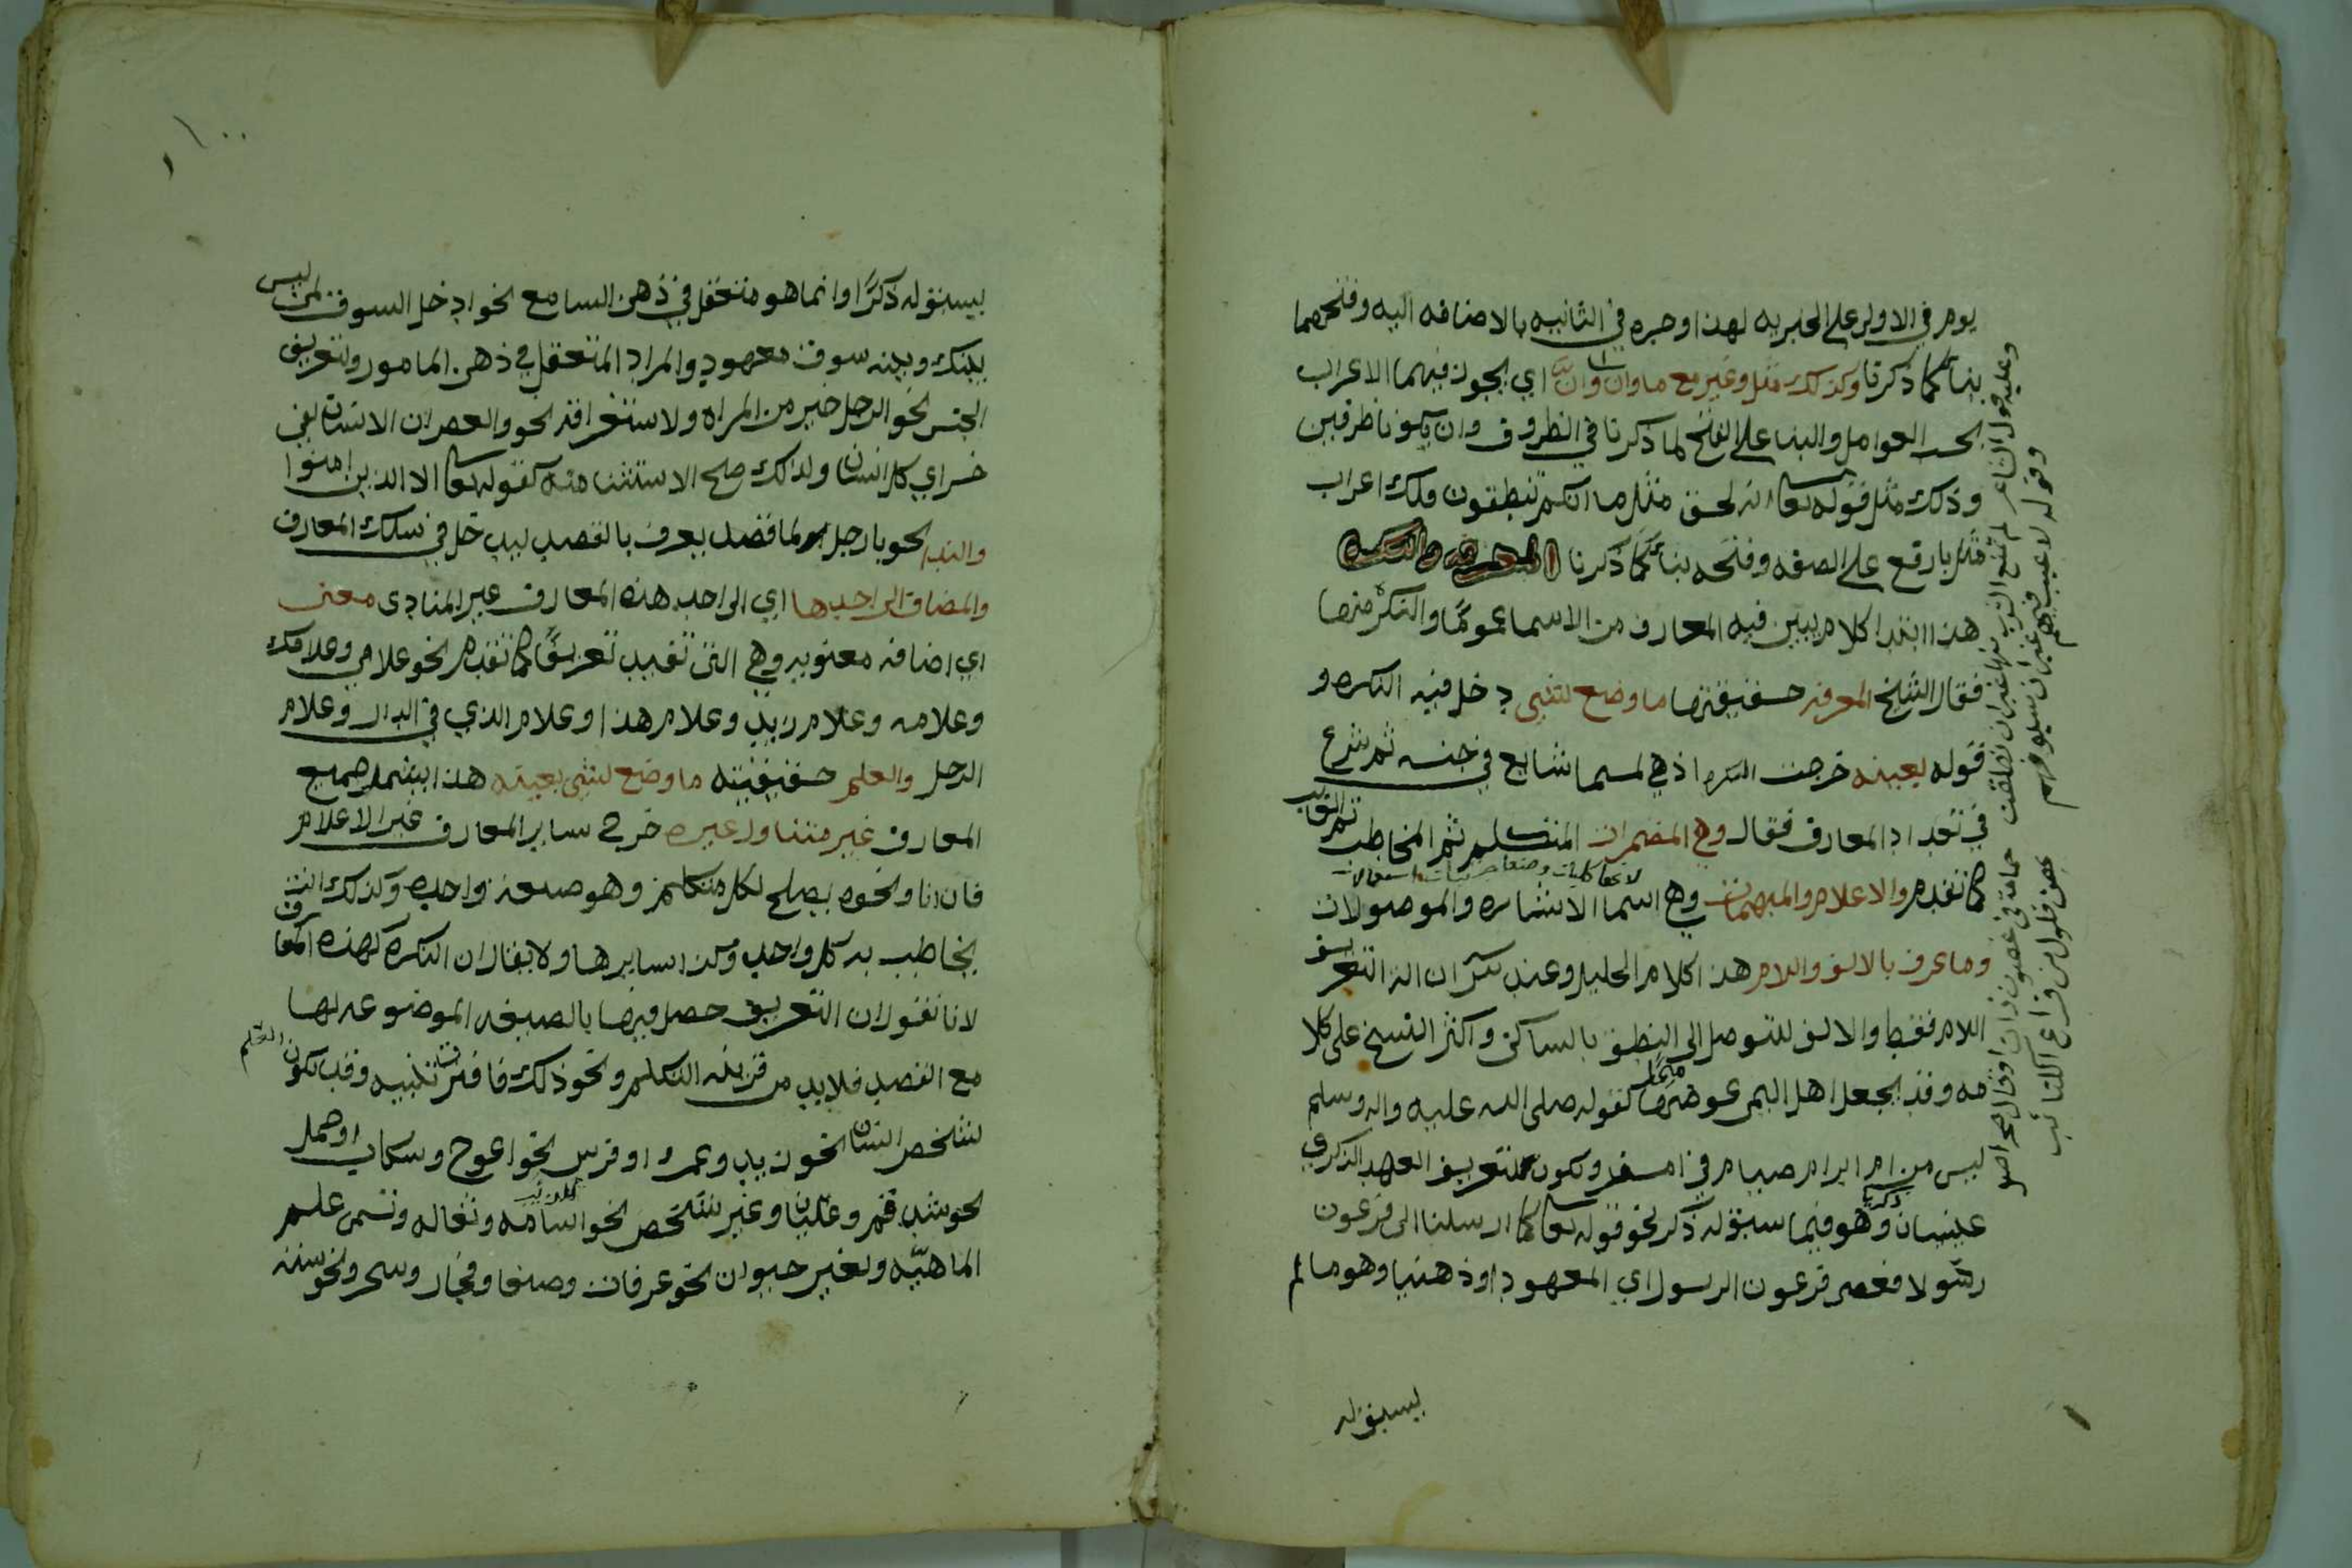 يوم في الاولى على الخبريه لهذا وجره في الثانيه بالاضافه اليه وفتحهما
بناءً كما ذكرنا وكذلك مثل وغير مع ما وان وانّ اي يجوز فيهما الاعراب
بحسب العوامل والبنا على الفتح لما ذكرنا في الظروف وان لم يكونا ظرفين
وذلك مثل قوله تعالى انه لحق مثل ما انكم تنطقون فلك اعراب
مثل بارفع على الصفه وفتحه بناءً كما ذكرنا المعرفه والنكره
هذا ابتدا كلام يبين فيه المعارف من الاسما عموماً والنكره منها
فقال الشيخ المعرفه حقيقتها ما وضع لشي دخل فيه النكره و
قوله بعينه خرجت النكره اذ هي لمسما شايع في جنسه ثم شرع
في تعداد المعارف فقال وهي المضمرات المتكلم ثم المخاطب ثم الغايب
كما تقدم والاعلام والمبهمات وهي اسما الاشاره والموصولات
وما عرف بالالف واللام هذا كلام الخليل وعند ان اله التعريف
اللام فقط والالف للتوصل الى النطق بالساكن واكثر النسخ على كلا
مه وقد يجعل اهل اليمن عوضها ميماً كقوله صلى الله عليه واله وسلم
ليس من ام ابرام صيام في امسفر وتكون لتعريف العهد الذكري
وهو فيما سبق له ذكر نحو قوله تعالى كما ارسلنا الى فرعون
رسولا فعصى فرعون الرسول اي المعهود او ذهنيا وهو ما لم
يسبق له
وعليه قول الشاعر لم يمنع الشرب منها غير ان نطقت حمامة في غصون ذات اوقال
وقوله لا عيب فيهم غير ان سيوفهم بهن فلول من قراع الكتائب
١٠٠
يسبق له ذكرًا وانما هو متعقل في ذهن السامع نحو ادخل السوق لمن ليس
بينك وبينه سوق معهود والمراد المتعقل في ذهن المامور ولتعريف
الجنس نحو الرجل خير من المراه ولاستغراقه نحو والعصر ان الانسان لفي
خسر اي كل انسان ولذلك صلح الاستثنا منه كقوله تعالى الا الذين امنوا
والندا نحو يا رجل لما قصد يعرف بالقصد ليدخل في سلك المعارف
والمضاف الى احدها اي الى احد هذه المعارف غير المنادى معنى
اي اضافه معنويه وهي التي تفيد تعريفًا كما تقدم نحو غلامي وغلامك
وغلامه وغلام زيد وغلام هذا وغلام الذي في الدار وغلام
الرجل والعلم حقيقيته ما وضع لشي بعينه هذا يشمل جميع
المعارف غير متناول غيره خرج ساير المعارف غير الاعلام
فان انا ونحوه يصلح لكل متكلم وهو صيغه واحده وكذلك انت
يخاطب به كل واحد وكذا سايرها ولا يقال ان النكره كهذه المعارف
لانا نقول ان التعريف حصل فيها بالصيغه الموضوعه لها
مع القصد فلا بد من قرينه التكلم ونحو ذلك فافترقا تنبيه وقد يكون العلم
لشخص انسان نحو زيد وعمرو او فرس نحو اعوج وسكاب او جمل
نحو شدقم وعليان وغير شخص نحو اسامه وثعاله وتسمى علم
الماهيّه ولغير حيوان نحو عرفات وصنعا وفجار وسحر ونحو سنه